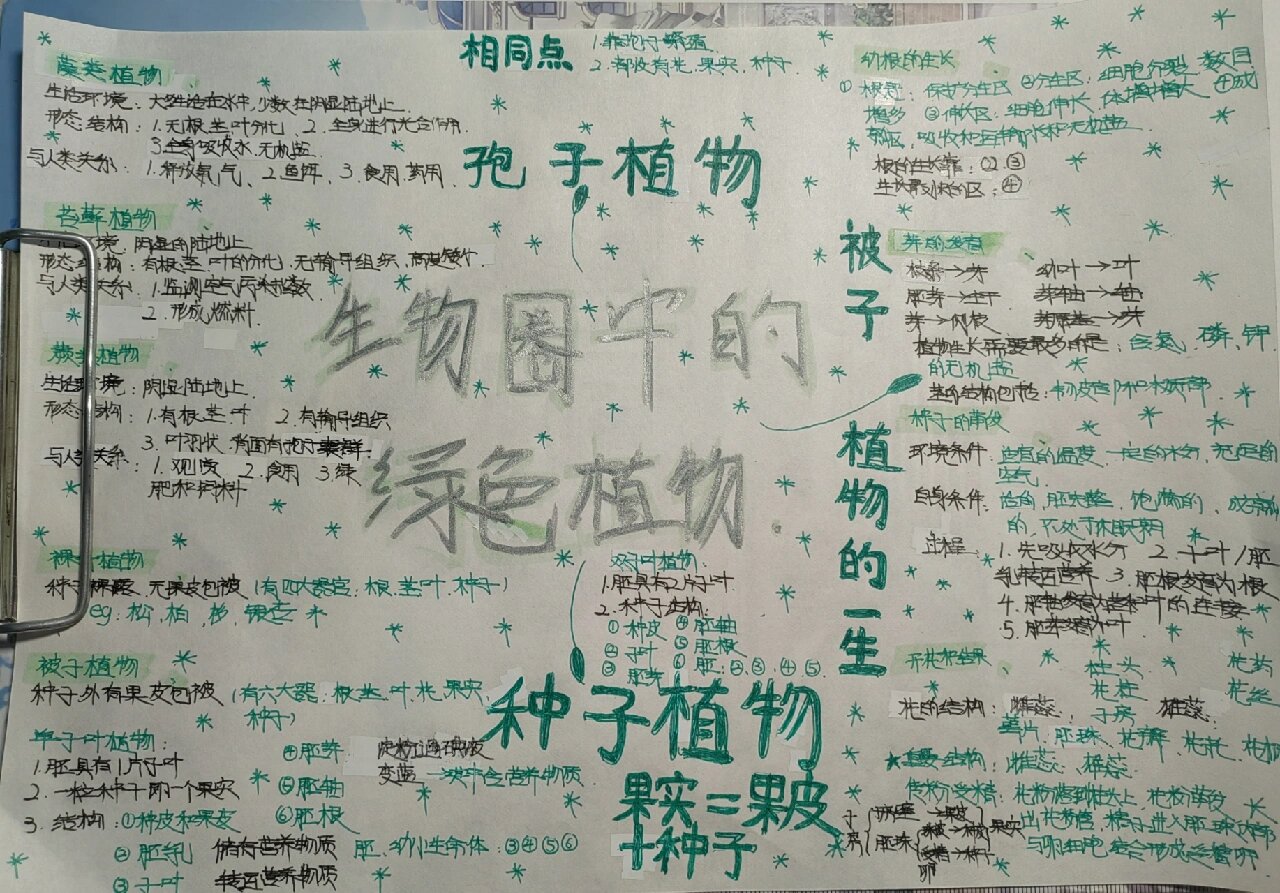 生物圈中的
绿色植物
相同点
1.靠孢子繁殖
2.都没有花、果实、种子
孢子植物
藻类植物
生活环境：大多生活在水中，少数在阴湿陆地上
形态结构：1.无根茎叶分化 2.全身进行光合作用
3.全身吸收水、无机盐
与人类关系：1.释放氧气、2.鱼饵、3.食用.药用
苔藓植物
环境：阴湿的陆地上
形态结构：有根、茎、叶的分化，无输导组织、
与人类关系：1.监测空气污染指数
2.形成燃料
蕨类植物
生活环境：阴湿陆地上
形态结构：1.有根、茎、叶 2.有输导组织
3.叶羽状，背面有孢子
与人类关系：1.观赏 2.食用 3.绿
肥和
裸子植物
种子裸露 无果皮包被（有四大器官：根、茎、叶、种子）
eg：松，柏，杉，银杏
被子植物
种子外有果皮包被（有六大器：根、茎、叶、花、果实、
种子）
单子叶植物：
1.胚具有1片子叶
2.一粒种子同一个果实
3.结构：①种皮和果皮
②胚乳 储存营养物质
③子叶 转运营养物质
④胚芽
⑤胚轴
⑥胚根
胚，幼小生命体：③④⑤⑥
淀粉遇碘液
变蓝
双子叶植物
1.胚具有2片子叶
2.种子结构：
①种皮 ④胚轴
②子叶 ⑤胚根
③胚芽 ⑥胚：②、③、④、⑤
种子植物
果实=果皮
+种子
被子植物的一生
幼根的生长
①根冠：保护分生区 ②分生区：细胞分裂，数目
增多 ③伸长区：细胞伸长，体积增大 ④成
熟区，吸收和运输水和无机盐
根的生长靠：②③
④
芽的发育
→芽 幼叶→叶
→茎
芽→侧枝
植物生长需要最多的是：含氮、磷、钾
的无机盐
种子的萌发
环境条件：适宜的温度，一定的水分，充足的
空气
自身条件：活的，胚完整，饱满的，成熟
的，不处于休眠期
过程 1.先吸收水分 2.子叶/胚
乳转运营养 3.胚根发育为根
4.胚轴发育为茎和叶的连接
5.胚芽发育为茎叶
开花和结果
柱头 花药
花柱 花丝
花的结构：雌蕊 子房 雄蕊
萼片、胚珠、花瓣、花托、花柄
主要结构：雌蕊、雄蕊
传粉、受精：花粉落到柱头上，花粉萌发
出花粉管，精子进入胚珠内部
与卵细胞结合形成受精卵
子房
胚珠
果实